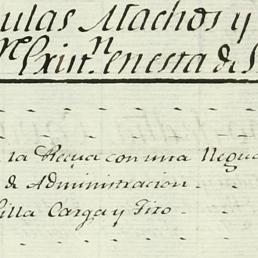 ulas Machos y
Exin.^n enesta de
la Recua con una Yegua
de Administracion.
silla Carga y Tiro.